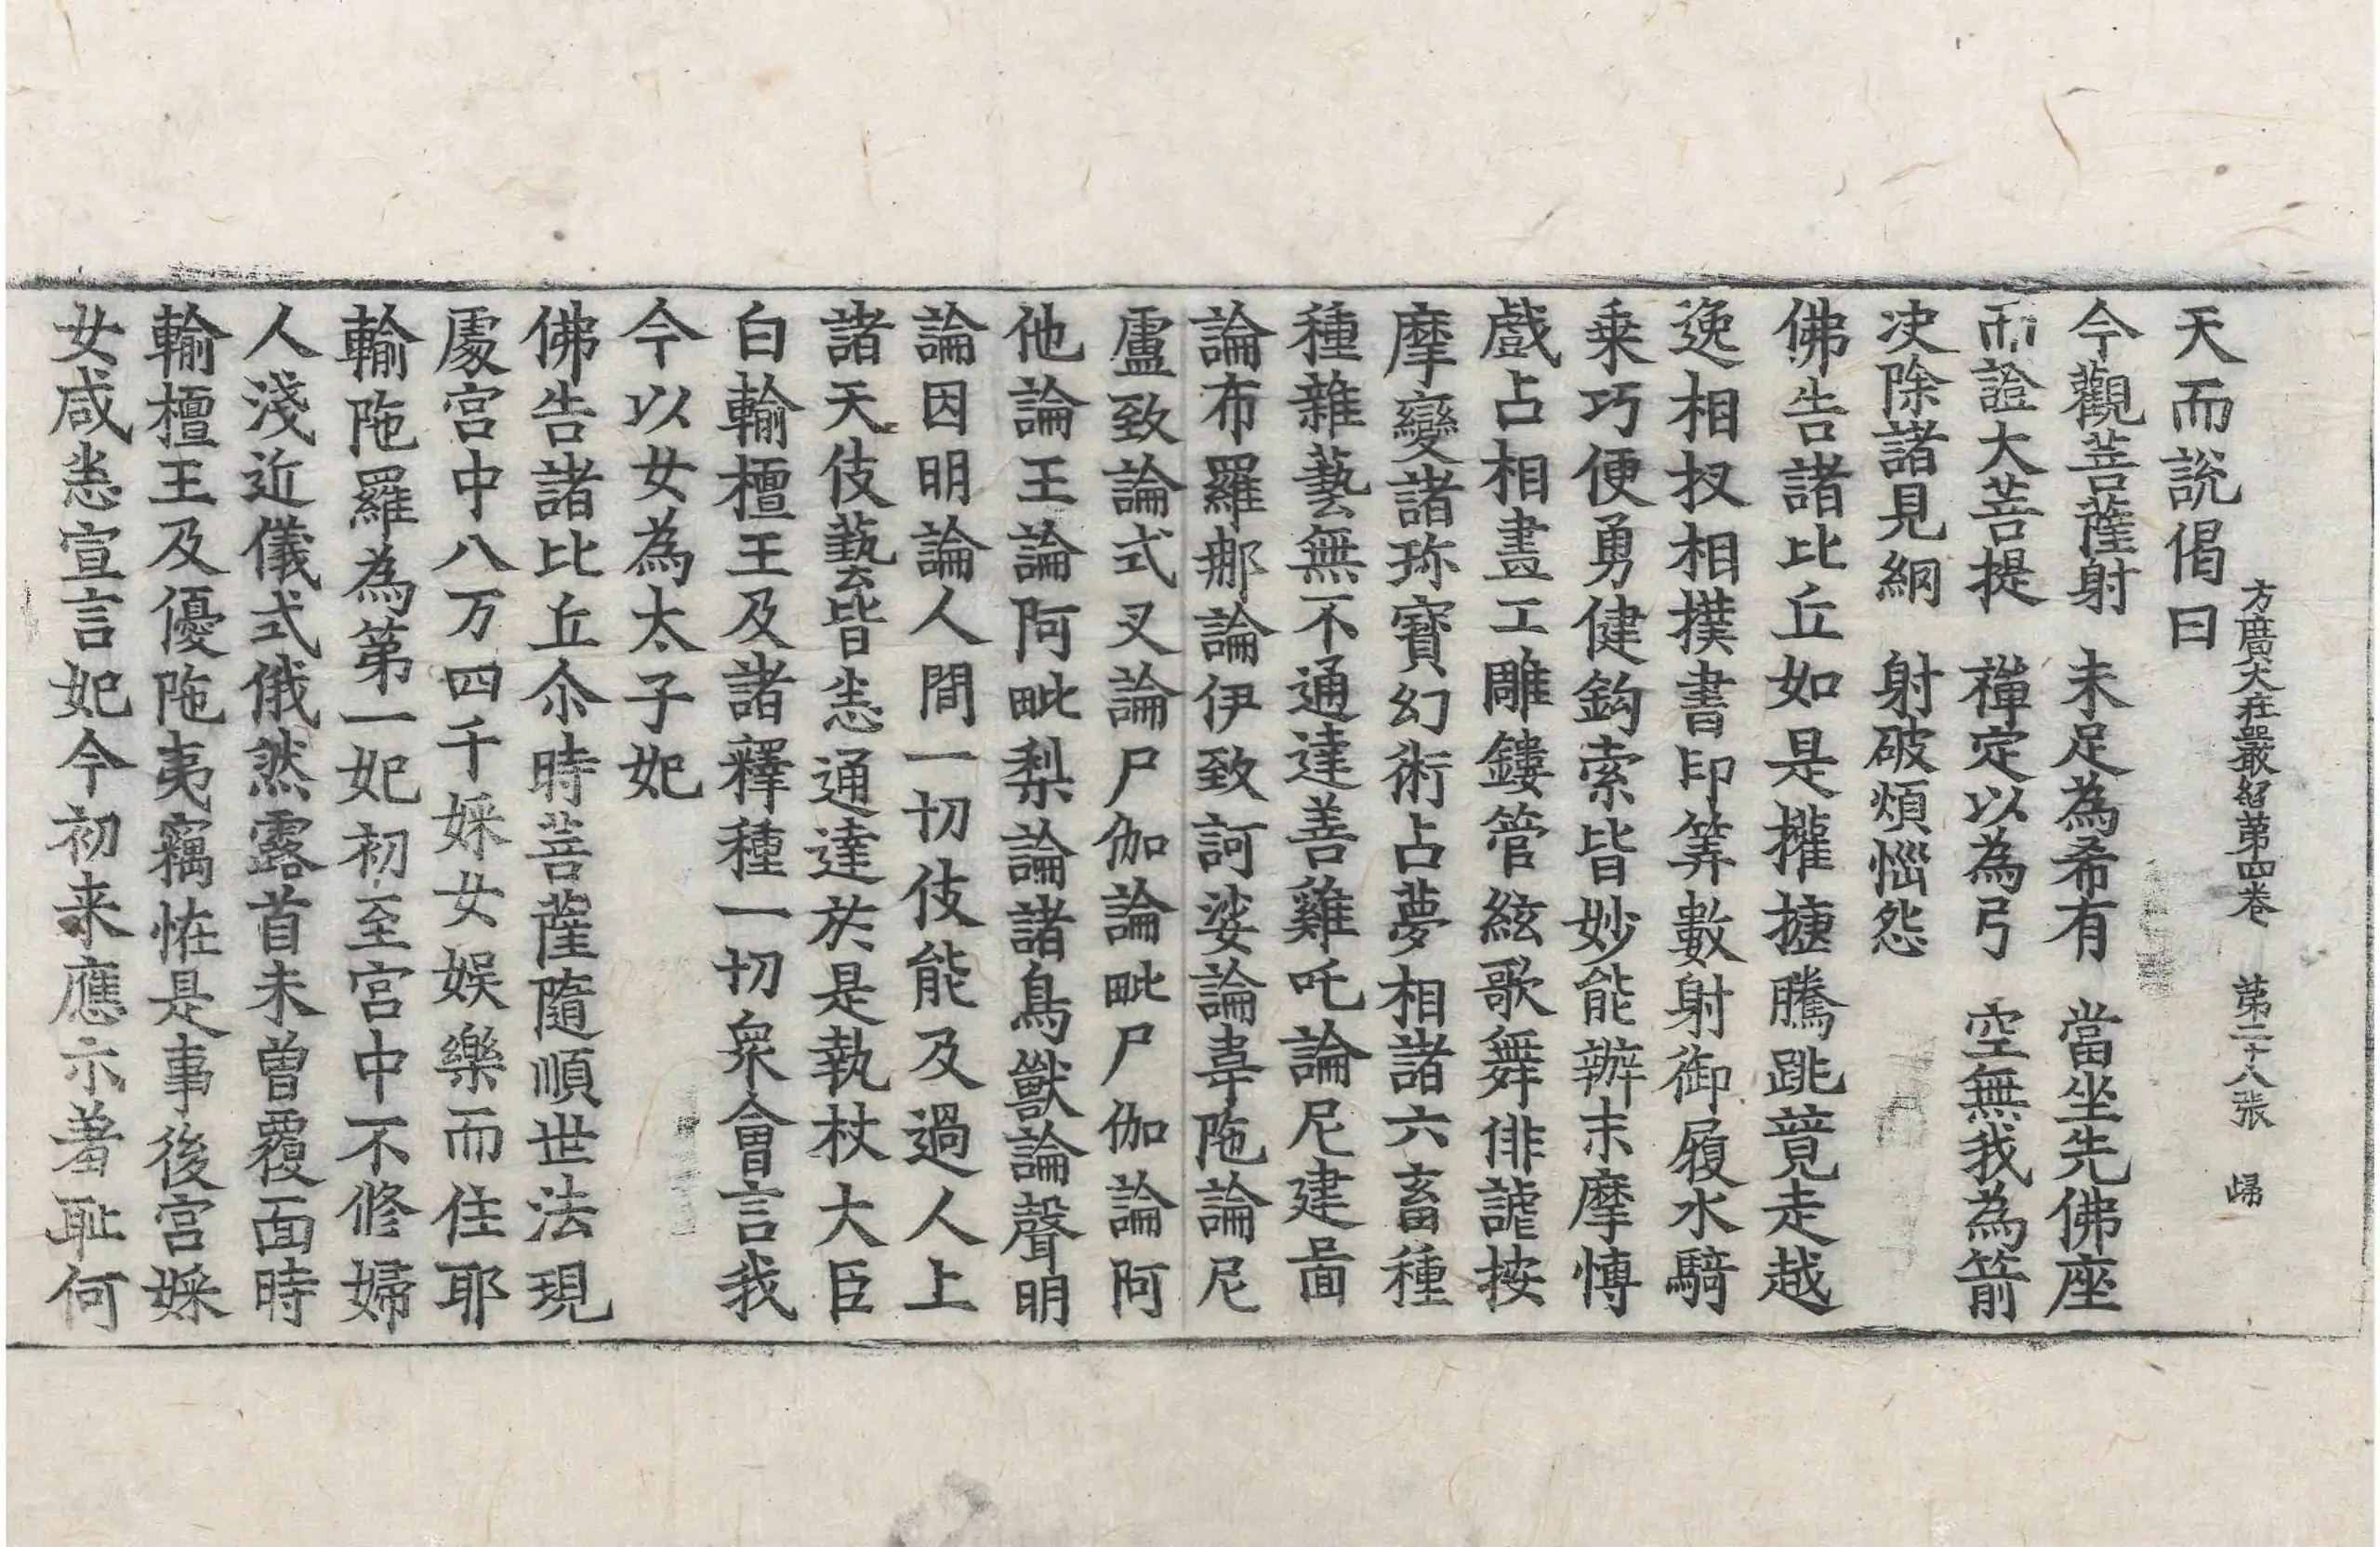 方廣大莊嚴經第四卷　第二十八張　歸
天而說偈曰
今觀菩薩射　未足為希有　當坐先佛座
而證大菩提　禪定以為弓　空無我為箭
決除諸見網　射破煩惱怨
佛告諸比丘如是㩲揵騰跳競走越
逸相扠相撲書印筭數射御履水騎
乗巧便勇健鈎索皆妙能辦末摩博
戲占相畫工雕鏤管絃歌舞俳謔按
摩變諸珎寶幻術占夢相諸六畜種
種雜藝無不通達善雞吒論尼建啚
論布羅那論伊致訶娑論韋陁論尼
盧致論式叉論尸伽論毗尸伽論阿
他論王論阿毗梨論諸鳥獸論聲明
論因明論人間一切伎能及過人上
諸天伎藝皆悉通達於是執杖大臣
白輸檀王及諸釋種一切衆會言我
今以女為太子妃
佛告諸比丘尒時菩薩隨順世法現
處宮中八万四千婇女娛樂而住耶
輸陁羅為第一妃初至宮中不修婦
人淺近儀式俄然露首未曾覆面時
輸檀王及優陁夷竊恠是事後宮婇
女咸悉宣言妃今初来應示著恥何